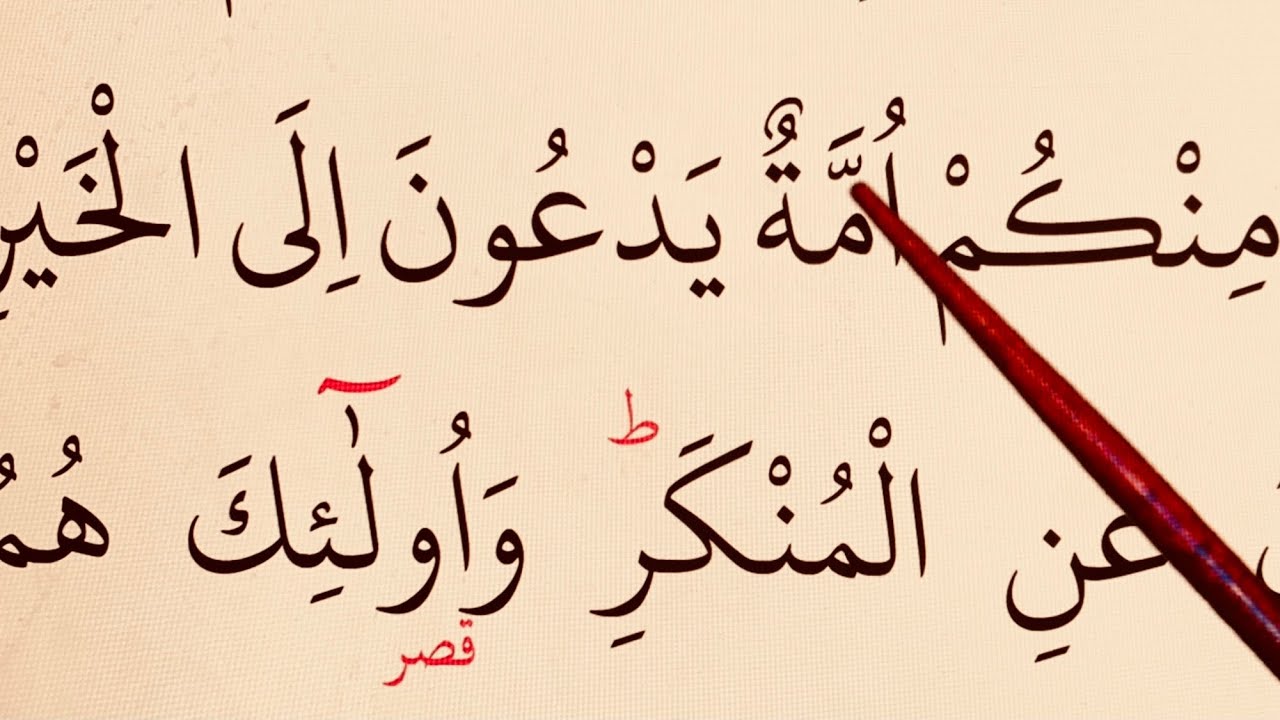 مِنْكُمْ اُمَّةٌ يَدْعُونَ اِلَى الْخَيْرِ
ط
عَنِ الْمُنْكَرِ وَاُولٰٓئِكَ هُمُ
قصر